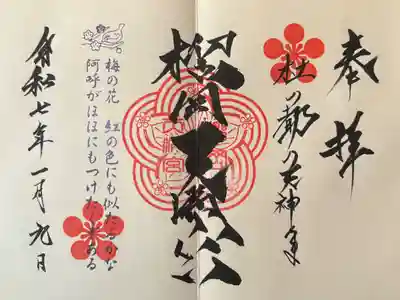 奉拝
杜の都の天神さま
榴岡天満宮
梅の花 紅の色にも似たるかな
阿呼がほほにもつけたくぞある
令和七年一月九日